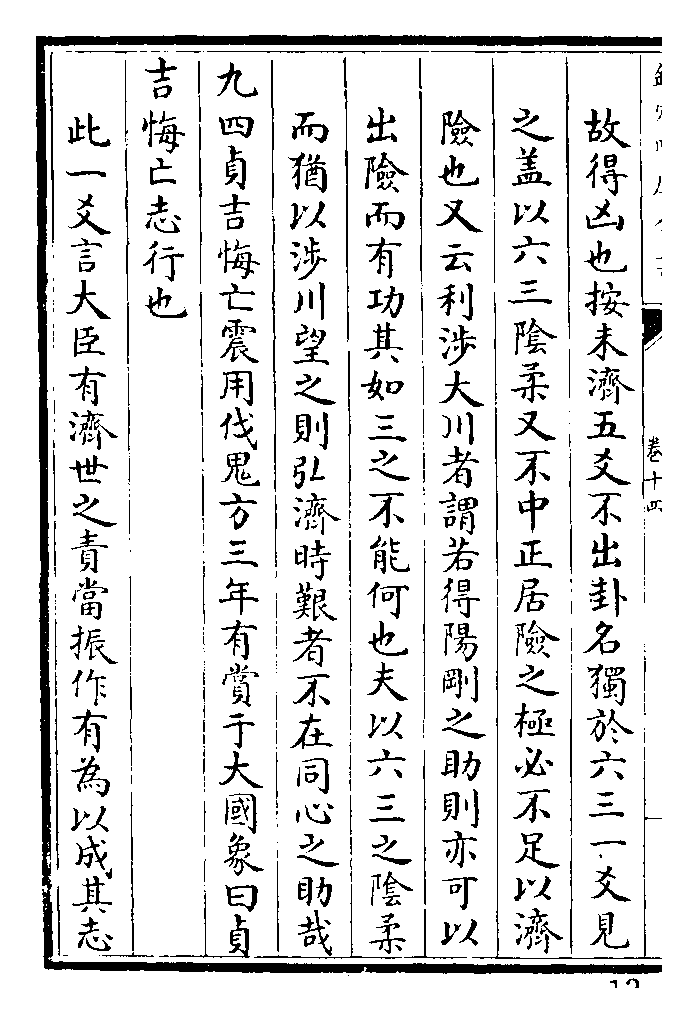 卷十四
故得凶也按未濟五爻不出卦名獨於六三一爻見
之盖以六三陰柔又不中正居險之極必不足以濟
險也又云利涉大川者謂若得陽剛之助則亦可以
出險而有功其如三之不能何也夫以六三之陰柔
而猶以涉川望之則弘濟時艱者不在同心之助哉
九四貞吉悔亡震用伐鬼方三年有賞于大國象曰貞
吉悔亡志行也
此一爻言大臣有濟世之責當振作有為以成其志